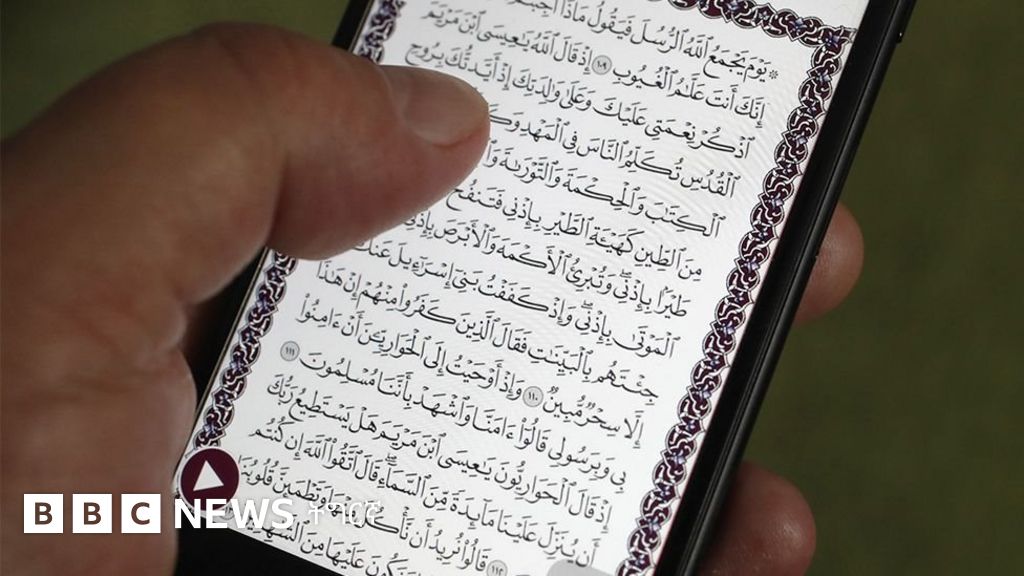 ۞ يَوْمَ يَجْمَعُ ٱللَّهُ ٱلرُّسُلَ فَيَقُولُ مَاذَآ
إِنَّكَ أَنتَ عَلَّـٰمُ ٱلْغُيُوبِ ١٠٩ إِذْ قَالَ ٱللَّهُ يَـٰعِيسَى ٱبْنَ مَرْيَمَ
ٱذْكُرْ نِعْمَتِى عَلَيْكَ وَعَلَىٰ وَٰلِدَتِكَ إِذْ أَيَّدتُّكَ بِرُوحِ
ٱلْقُدُسِ تُكَلِّمُ ٱلنَّاسَ فِى ٱلْمَهْدِ
ٱلْكِتَـٰبَ وَٱلْحِكْمَةَ وَٱلتَّوْرَىٰةَ
مِنَ ٱلطِّينِ كَهَيْـَٔةِ ٱلطَّيْرِ بِإِذْنِى فَتَنفُخُ
طَيْرًۢا بِإِذْنِى وَتُبْرِئُ ٱلْأَكْمَهَ وَٱلْأَبْرَصَ بِإِذْنِى
ٱلْمَوْتَىٰ بِإِذْنِى وَإِذْ كَفَفْتُ بَنِىٓ إِسْرَٰٓءِيلَ عَنكَ
جِئْتَهُم بِٱلْبَيِّنَـٰتِ فَقَالَ ٱلَّذِينَ كَفَرُوا۟ مِنْهُمْ إِنْ هَـٰذَآ
إِلَّا سِحْرٌ مُّبِينٌ ١١٠ وَإِذْ أَوْحَيْتُ إِلَى ٱلْحَوَارِيِّـۧنَ أَنْ ءَامِنُوا۟
بِى وَبِرَسُولِى قَالُوٓا۟ ءَامَنَّا وَٱشْهَدْ بِأَنَّنَا مُسْلِمُونَ ١١١
إِذْ قَالَ ٱلْحَوَارِيُّونَ يَـٰعِيسَى ٱبْنَ مَرْيَمَ هَلْ يَسْتَطِيعُ رَبُّكَ
أَن يُنَزِّلَ عَلَيْنَا مَآئِدَةً مِّنَ ٱلسَّمَآءِ قَالَ ٱتَّقُوا۟ ٱللَّهَ إِن كُنتُم
١١٢ قَالُوا۟ نُرِيدُ أَن نَّأْكُلَ مِنْهَا وَتَطْمَئِنَّ قُلُوبُنَا
وَنَكُونَ عَلَيْهَا مِنَ
BBC NEWS አማርኛ